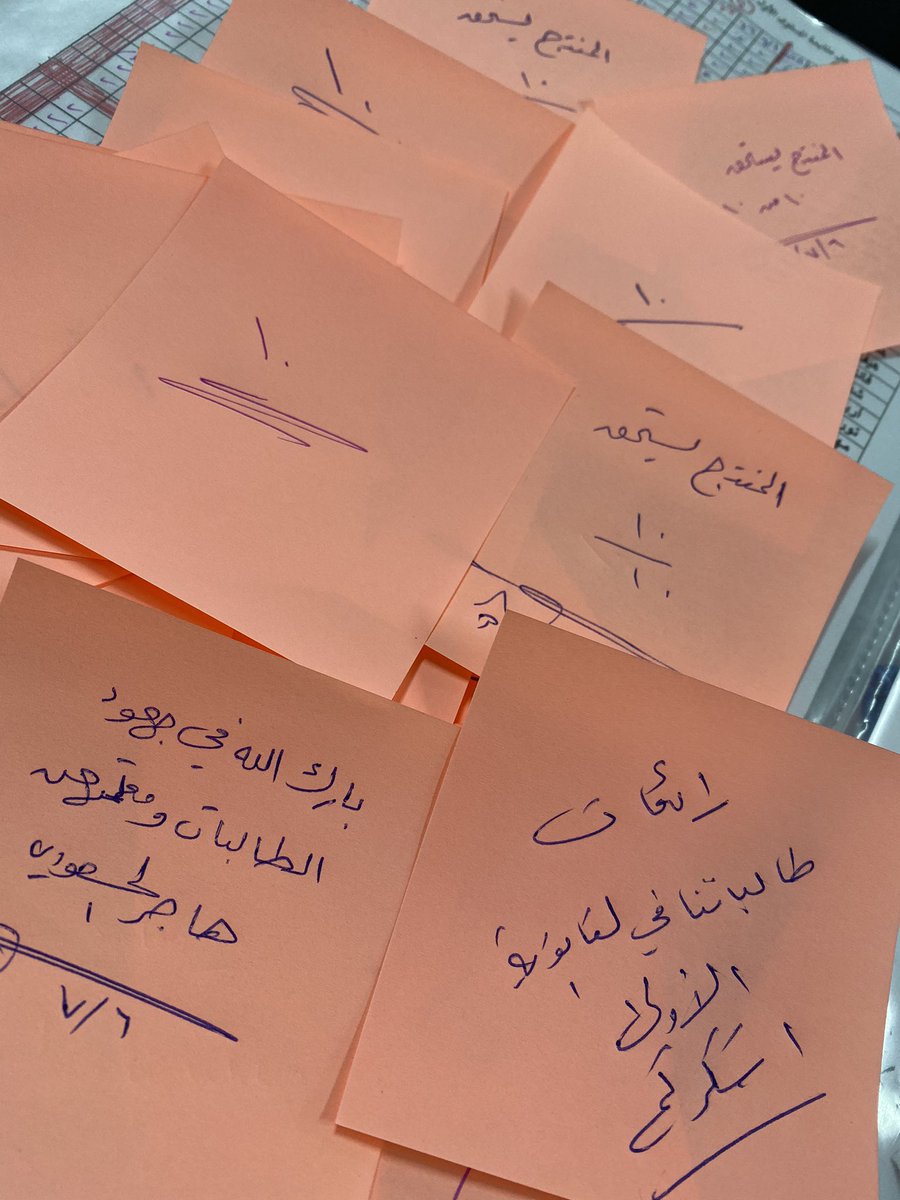 المنتج يستحق
١٠
١٠
المنتج يستحق
١٠ من ١٠
٧/٦
١٠
١٠
المنتج يستحق
١٠
١٠
بارك الله في جهود
الطالبات ومعلمتهن
هاجر
٧/٦
رائعات
طالباتنا في الثانوية
الأولى
اشكركم